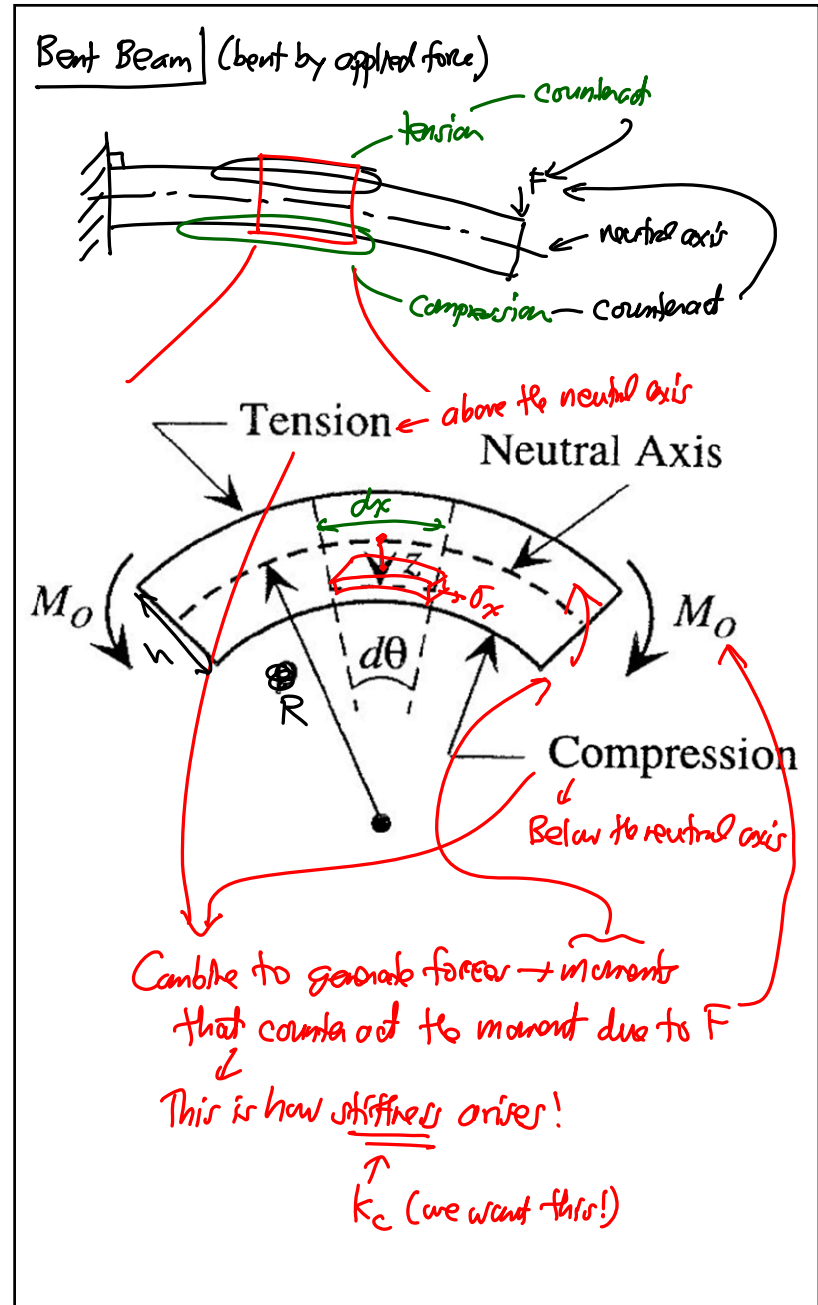 Bent Beam (bent by applied force)
counteract
tension
F
neutral axis
compression — counteract
above the neutral axis
Tension
Neutral Axis
dx
z
σx
Mo
Mo
h
dθ
R
Compression
Below the neutral axis
Combine to generate forces → moments
that counteract the moment due to F
This is how stiffness arises!
kc (we want this!)